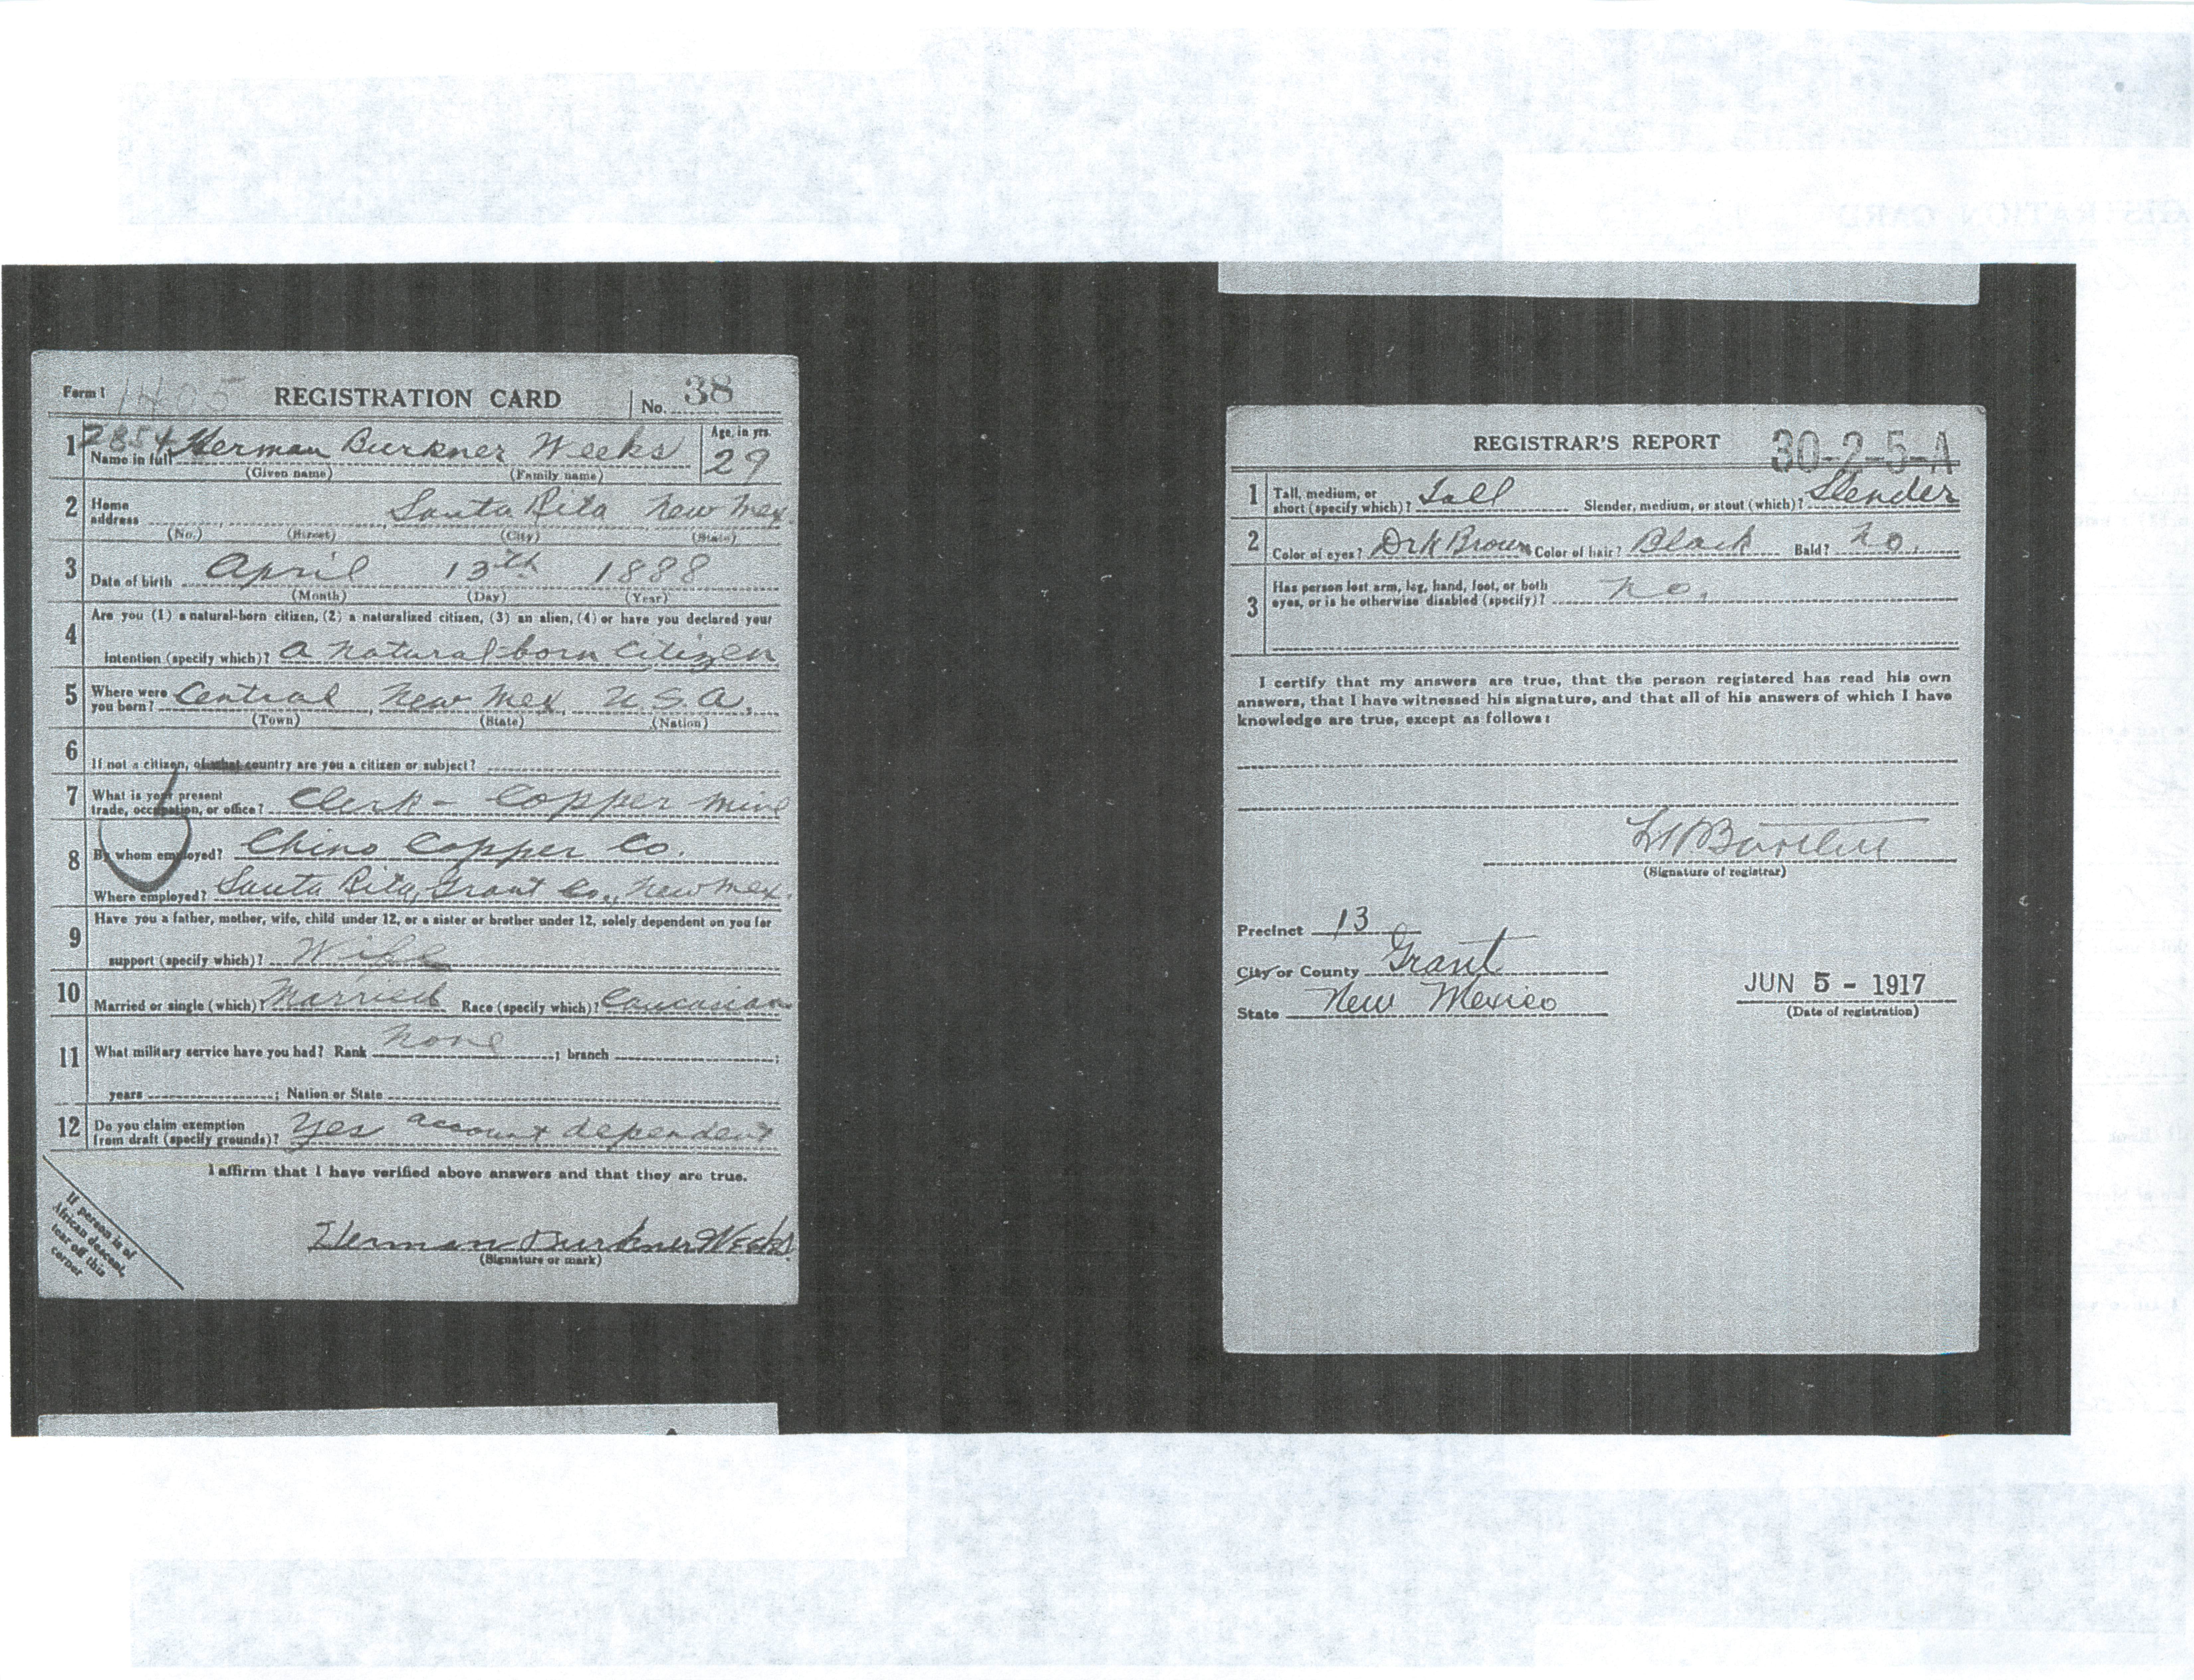 Form 1 1405 REGISTRATION CARD No. 38
1 2854 Name in full Herman Burkner Weeks Age, in yrs. 29
(Given name) (Family name)
2 Home address Santa Rita New Mex.
(No.) (Street) (City) (State)
3 Date of birth April 13th 1888
(Month) (Day) (Year)
4 Are you (1) a natural-born citizen, (2) a naturalized citizen, (3) an alien, (4) or have you declared your
intention (specify which)? a natural-born citizen
5 Where were you born? Central New Mex. U.S.A.
(Town) (State) (Nation)
6 If not a citizen, of what country are you a citizen or subject?
7 What is your present
trade, occupation, or office? Clerk - Copper mine
8 By whom employed? Chino Copper Co.
Where employed? Santa Rita, Grant Co., New Mex.
9 Have you a father, mother, wife, child under 12, or a sister or brother under 12, solely dependent on you for
support (specify which)? Wife
10 Married or single (which)? Married Race (specify which)? Caucasian
11 What military service have you had? Rank none ; branch ;
years ; Nation or State
12 Do you claim exemption
from draft (specify grounds)? Yes account dependent
I affirm that I have verified above answers and that they are true.
Herman Burkner Weeks
(Signature or mark)
If person is of
African descent,
tear off this
corner
REGISTRAR'S REPORT 30-2-5-A
1 Tall, medium, or
short (specify which)? Tall Slender, medium, or stout (which)? Slender
2 Color of eyes? Drk Brown Color of hair? Black Bald? No.
3 Has person lost arm, leg, hand, foot, or both
eyes, or is he otherwise disabled (specify)? No.
I certify that my answers are true, that the person registered has read his own
answers, that I have witnessed his signature, and that all of his answers of which I have
knowledge are true, except as follows:
(Signature of registrar)
Precinct 13
City or County Grant
State New Mexico
JUN 5 - 1917
(Date of registration)